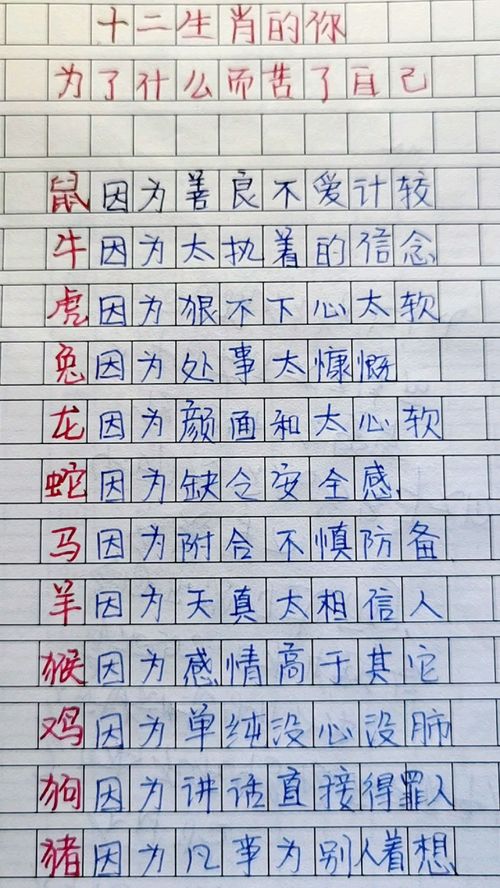 十二生肖的你
为了什么而苦了自己
鼠因为善良不爱计较
牛因为太执着的信念
虎因为狠不下心太软
兔因为处事太慷慨
龙因为颜面和太心软
蛇因为缺令安全感
马因为附合不慎防备
羊因为天真太相信人
猴因为感情高于其它
鸡因为单纯没心没肺
狗因为讲话直接得罪人
猪因为凡事为别人着想